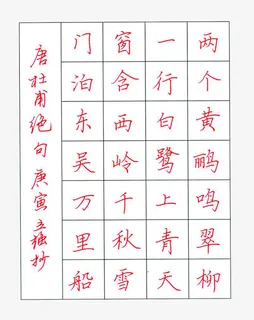 两个黄鹂鸣翠柳
一行白鹭上青天
窗含西岭千秋雪
门泊东吴万里船
唐杜甫绝句庚寅抄